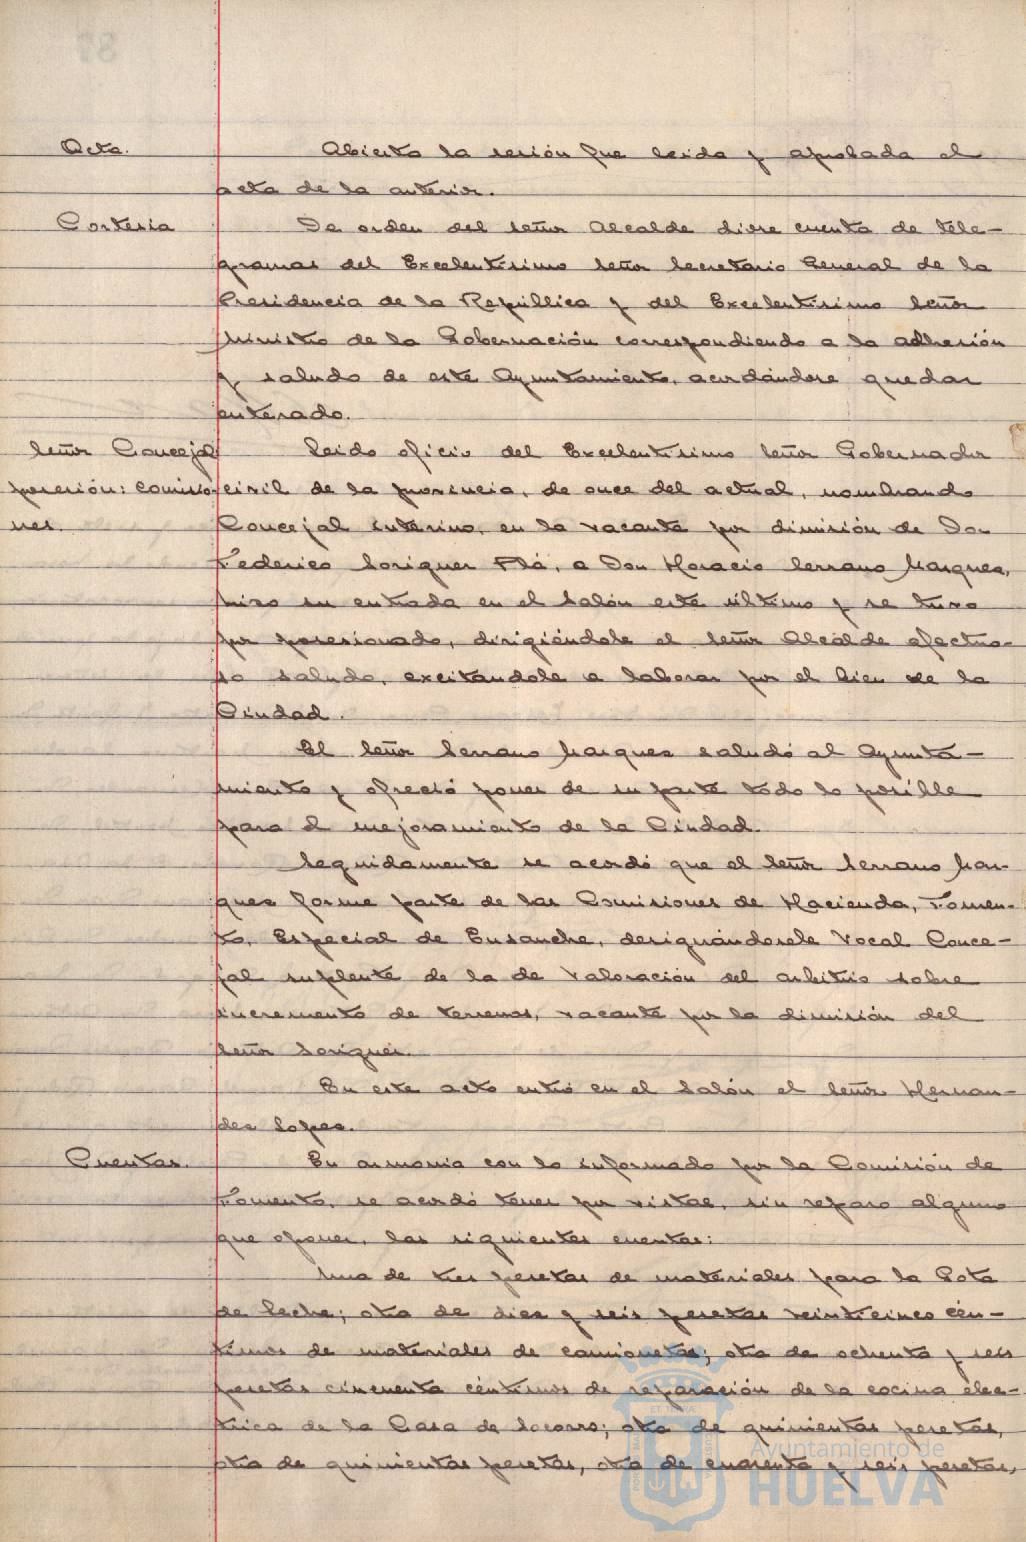 Acta.
Abierta la sesión fue leida y aprobada el
acta de la anterior.
Cortesia
De orden del señor Alcalde dióse cuenta de tele-
gramas del Excelentísimo señor Secretario General de la
Presidencia de la República y del Excelentísimo señor
Ministro de la Gobernación correspondiendo a la adhesión
y saludo de este Ayuntamiento, acordándose quedar
enterado.
Señor Concejal
posesión: comisio-
nes.
Leido oficio del Excelentísimo señor Gobernador
civil de la provincia, de once del actual, nombrando
Concejal interino, en la vacante por dimisión de Don
Federico Soriguer Plá, a Don Horacio Serrano Marquez,
hizo su entrada en el Salón este último y se tuvo
por posesionado, dirigiéndole el señor Alcalde afectuo-
so saludo, excitándole a laborar por el bien de la
Ciudad.
El señor Serrano Marquez saludó al Ayunta-
miento y ofreció poner de su parte todo lo posible
para el mejoramiento de la Ciudad.
Seguidamente se acordó que el señor Serrano Mar-
quez forme parte de las Comisiones de Hacienda, Fomen-
to, Especial de Ensanche, designándosele Vocal Conce-
jal suplente de la de Valoración del arbitrio sobre
incremento de terrenos, vacante por la dimisión del
señor Soriguer.
En este acto entró en el Salón el señor Hernan-
dez Lopez.
Cuentas.
En armonia con lo informado por la Comisión de
Fomento, se acordó tener por vistas, sin reparo alguno
que oponer, las siguientes cuentas:
Una de tres pesetas de materiales para la Gota
de Leche; otra de diez y seis pesetas veinticinco cén-
timos de materiales de camionetas; otra de ochenta y seis
pesetas cincuenta céntimos de reparación de la cocina eléc-
trica de la Casa de Socorro; otra de quinientas pesetas,
otra de quinientas pesetas, otra de cuarenta y seis pesetas,
Ayuntamiento de
HUELVA